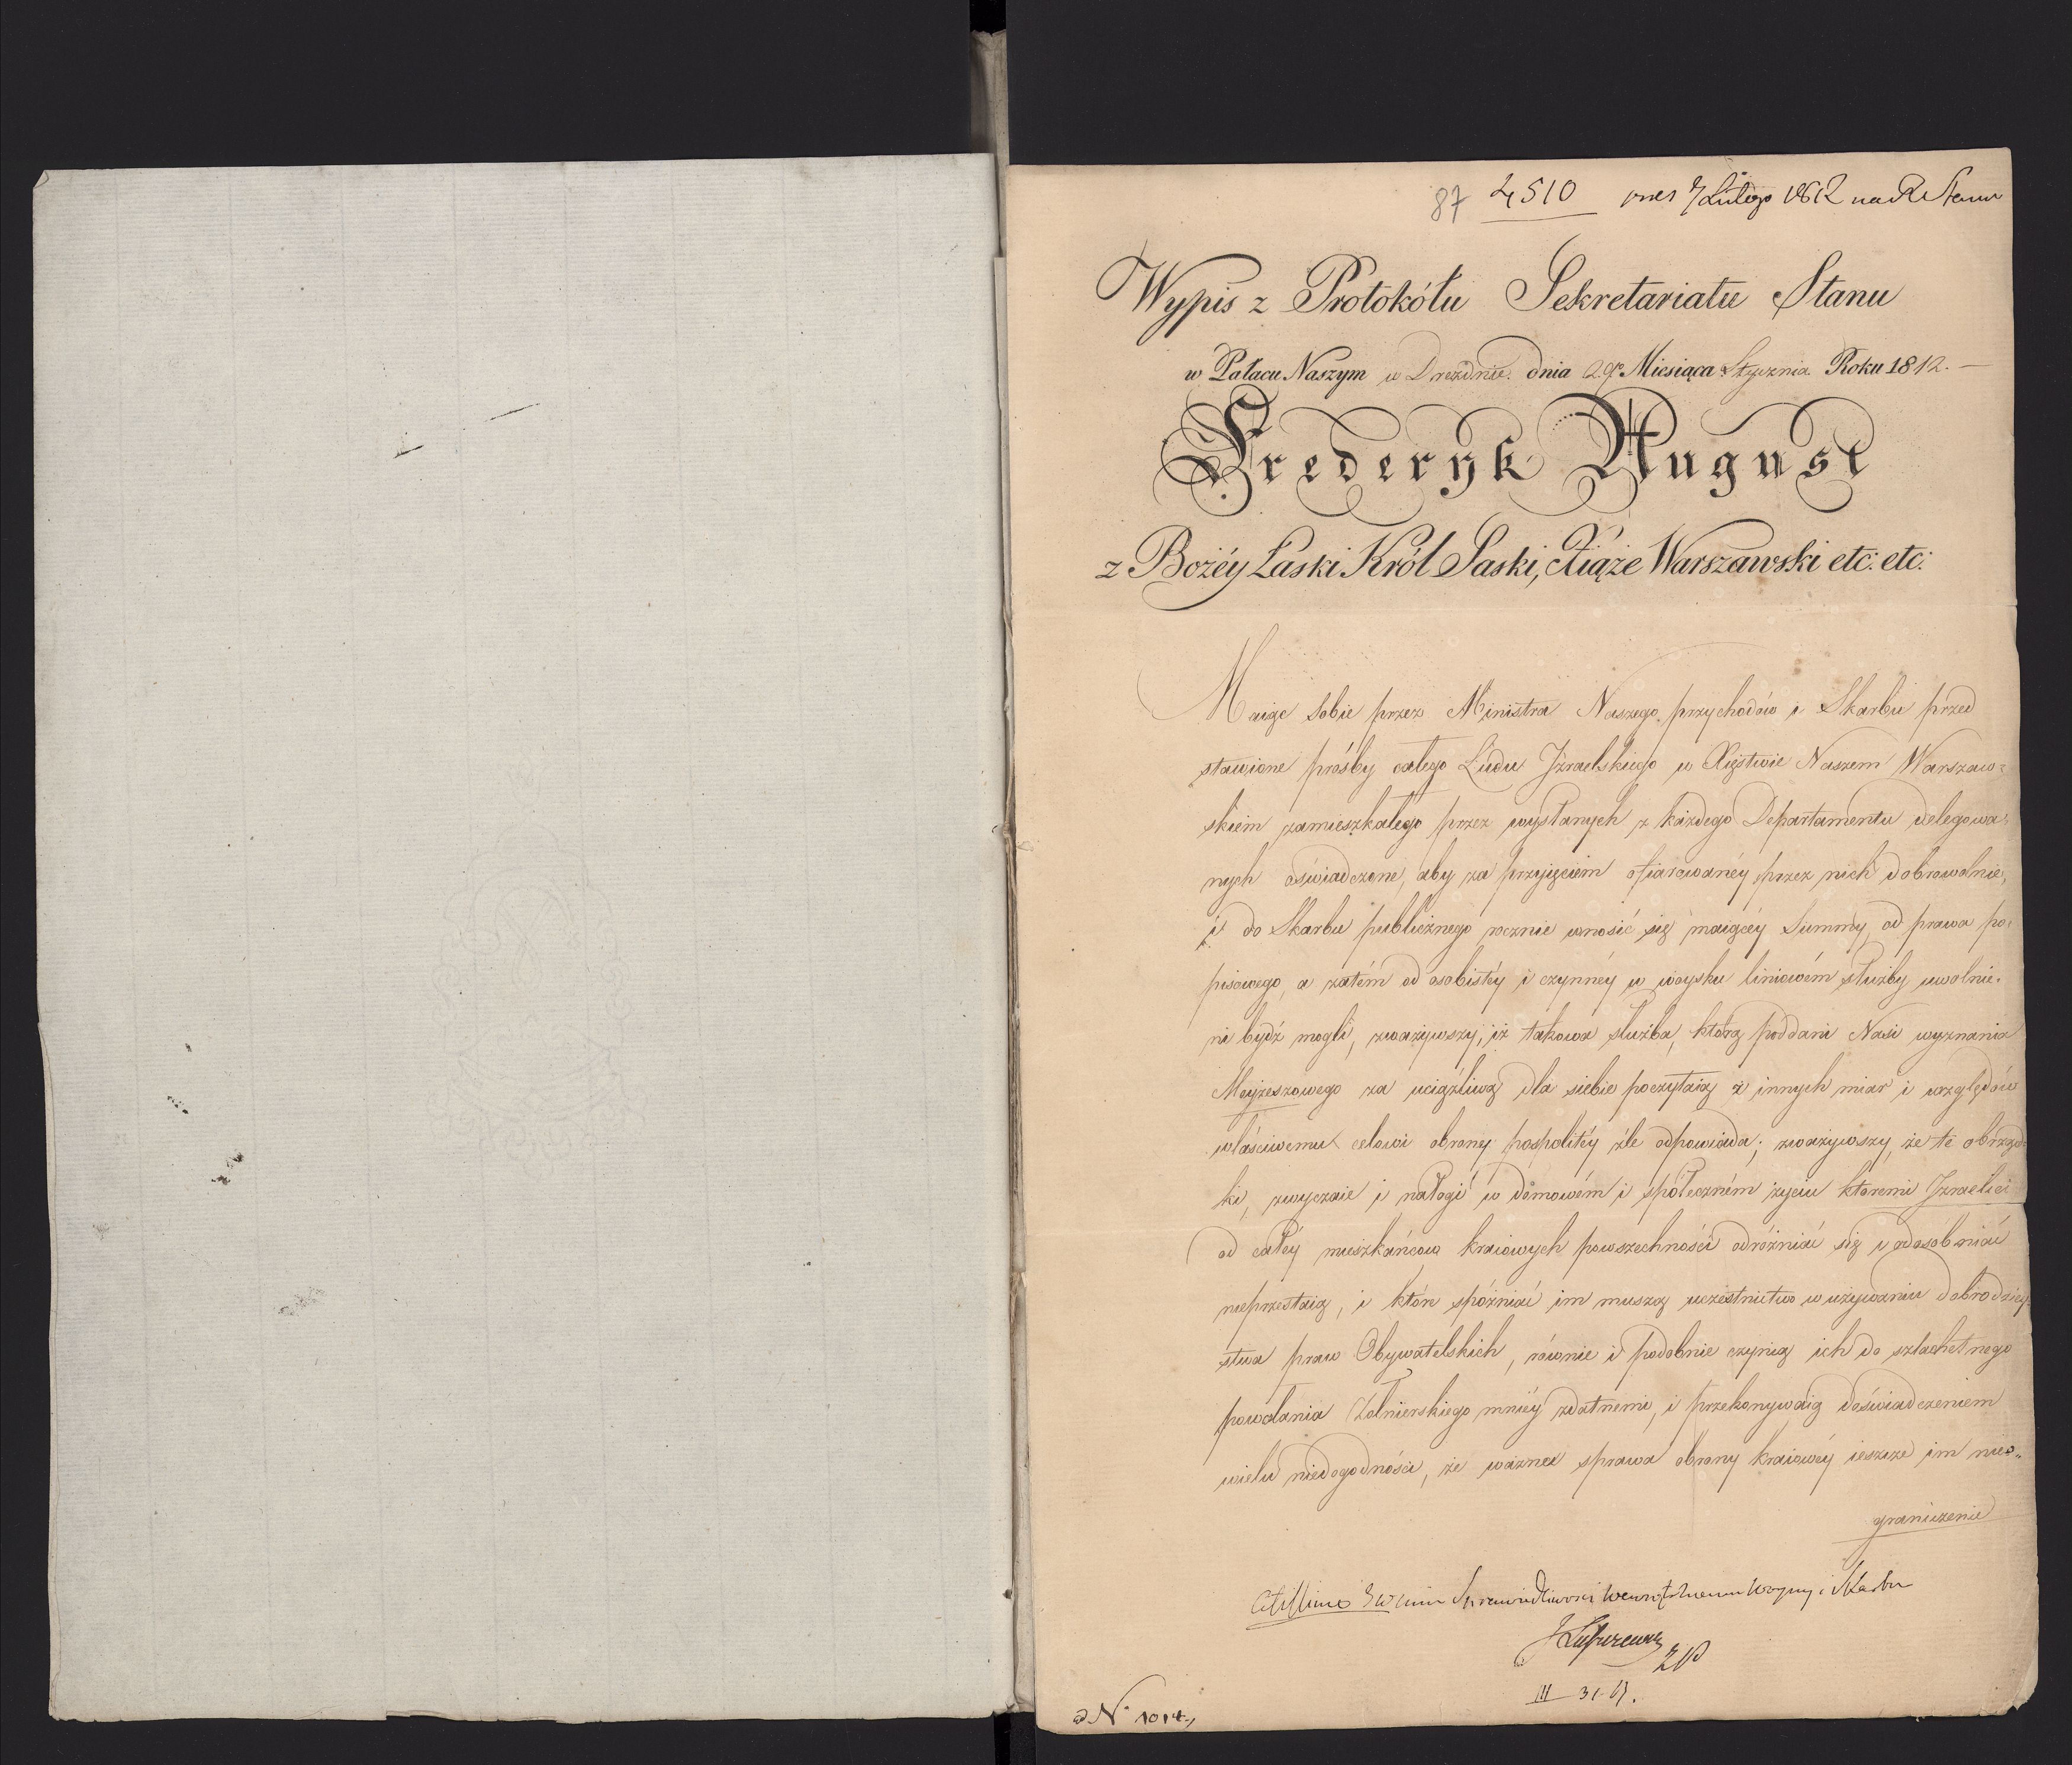 87 4510 7 Lutego 1812 na R Stanu
Wypis z Protokółu Sekretariatu Stanu
w Pałacu Naszym w Dreznie. dnia 29 Miesiąca Stycznia Roku 1812.—
Frederyk August
z Bożéy Łaski Król Saski, Xiąże Warszawski etc: etc:
Maiąc sobie przez Ministra Naszego przychodów i Skarbu przed
stawione prośby całego Ludu Jzraelskiego w Xięstwie Naszem Warszaw=
skiém zamieszkałego przez wysłanych z każdego Departamentu delegowa,
nych oświadczone, aby za przyięciém ofiarowanéy przez nich dobrowolnie,
i do Skarbu publicznego rocznie wnosić się maiącéy Summy, od prawa po,
pisowego, a zatém od osobistéy i czynnéy w woysku liniowém służby uwolnie.
ni bydź mogli, zważywszy, iż takowa służba, którą poddani Nasi wyznania
Moyżeszowego za uciążliwą dla siebie poczytaią z innych miar i względów
właściwemu celowi obrony pospolitéy źle odpowiada; zważywszy, że te obrząd
ki, zwyczaie i nałogi w domowém i społeczném życiu któremi Jzraelici
od całéy mieszkańców kraiowych powszechności odróżniać się i odosobniać
nieprzestaią, i które spóźniać im muszą uczestnictwo w używaniu dobrodziey
stwa praw Obywatelskich, równie i podobnie czynią ich do szlachetnego
powołania Żołnierskiego mniéy zdatnemi, i przekonywaią doświadczeniem
wielu niedogodności, że ważna sprawa obrony kraiowéy ieszcze im nieo„
graniczenie
Sprawiedliwości Wewnętrznemu Woyny i Skarbu
J Łuszczewski
III 31-
ad N° 1014.